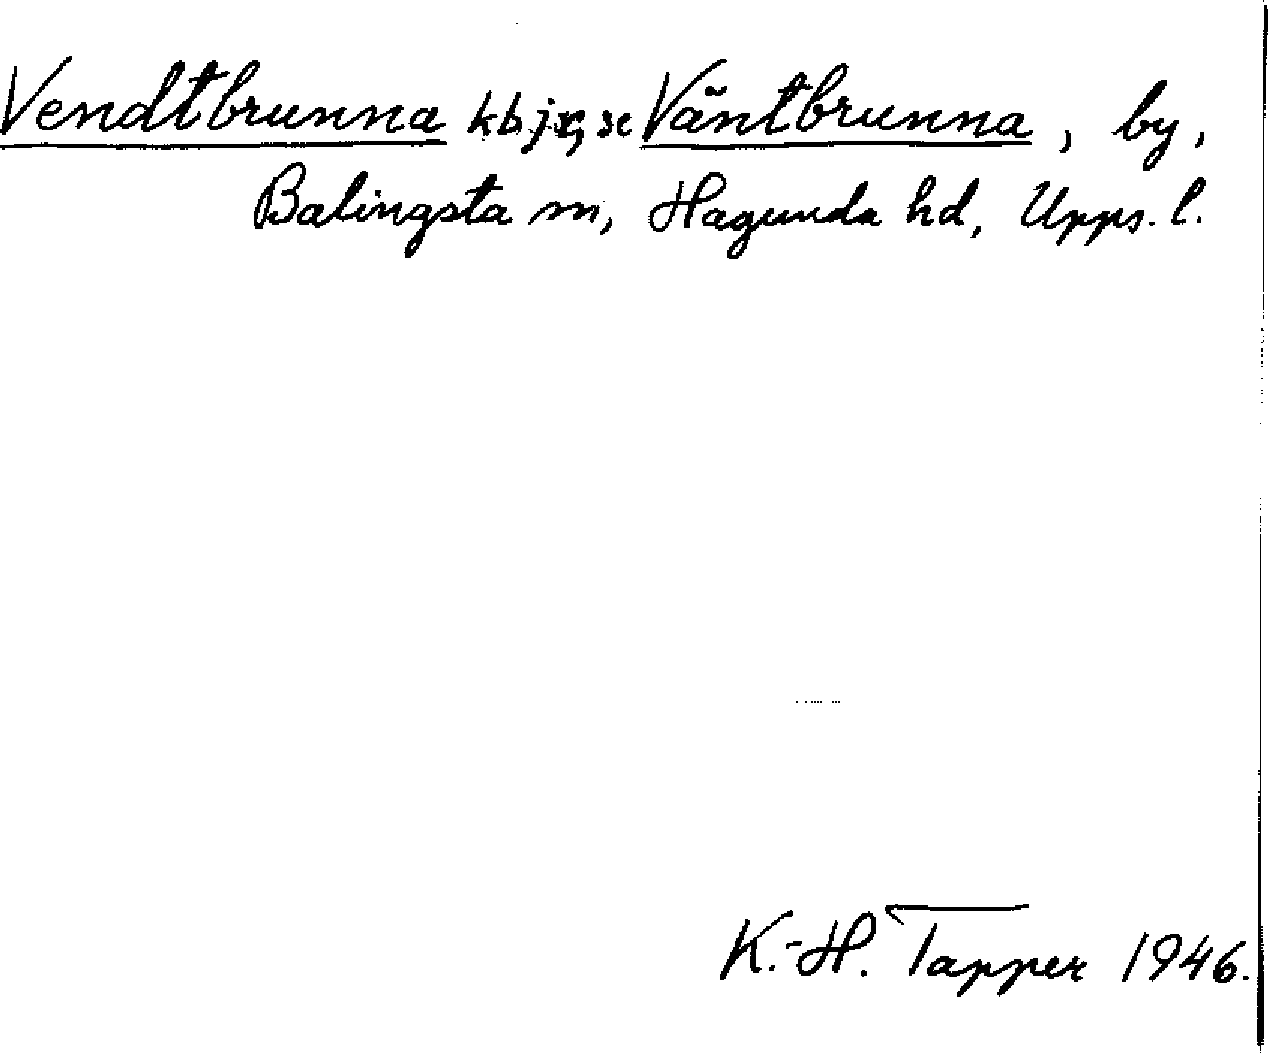 Vendtbrunna kbjx, se Väntbrunna, by,
Balingsta sn, Hagunda hd, Upps. l.
K.-H. Tapper 1946.